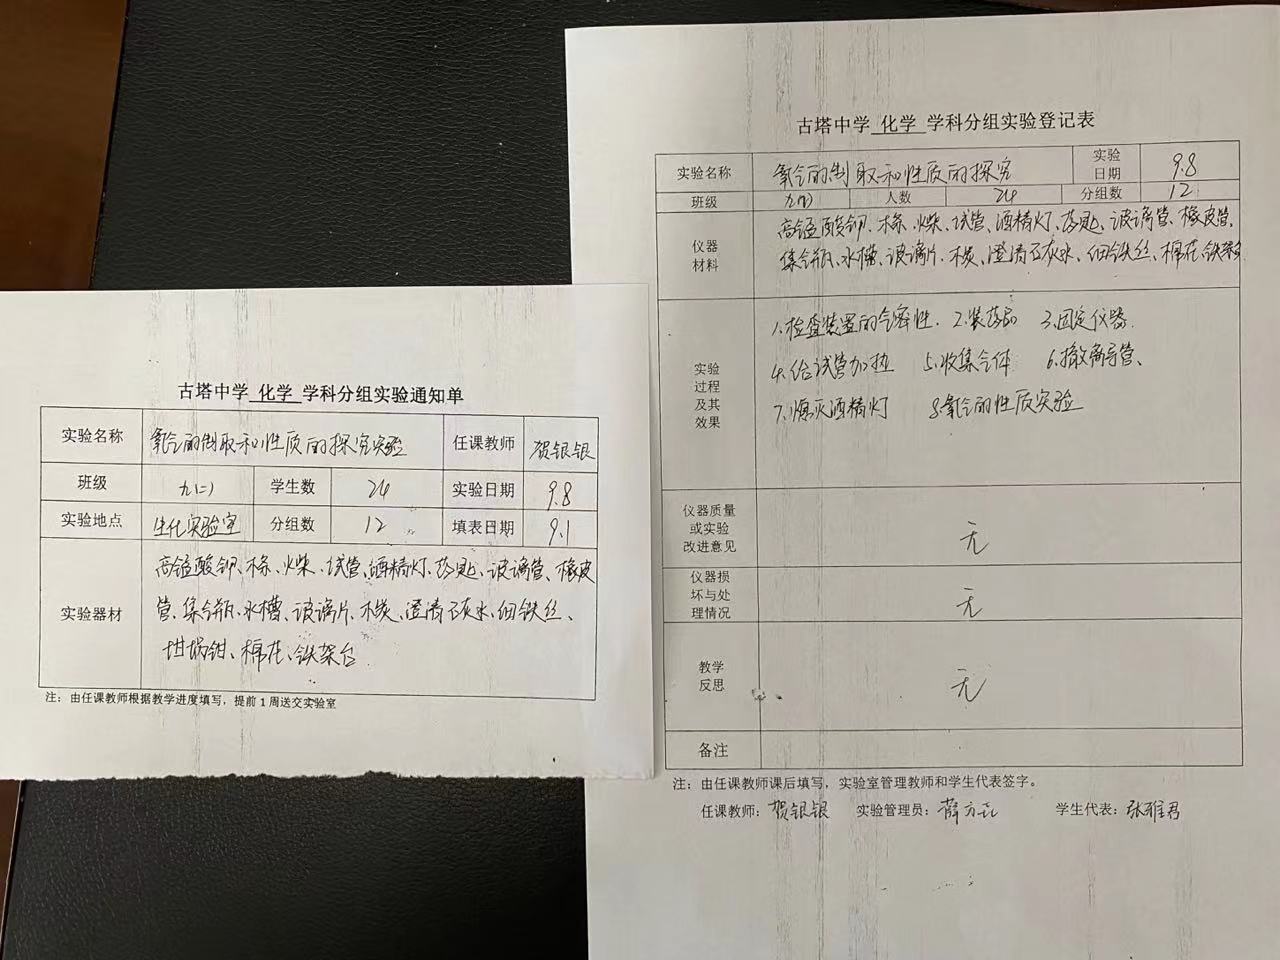 古塔中学 化学 学科分组实验通知单
实验名称 氧气的制取和性质的探究实验 任课教师 贺银银
班级 九(二) 学生数 24 实验日期 9.8
实验地点 生化实验室 分组数 12 填表日期 9.1
实验器材
高锰酸钾、木条、火柴、试管、酒精灯、药匙、玻璃管、橡皮
管、集气瓶、水槽、玻璃片、木炭、澄清石灰水、细铁丝、
坩埚钳、棉花、铁架台
注：由任课教师根据教学进度填写，提前1周送交实验室
古塔中学 化学 学科分组实验登记表
实验名称 氧气的制取和性质的探究 实验日期 9.8
班级 人数 24 分组数 12
仪器材料
高锰酸钾、木条、火柴、试管、酒精灯、药匙、玻璃管、橡皮管、
集气瓶、水槽、玻璃片、木炭、澄清石灰水、细铁丝、棉花、铁架台
实验过程及其效果
1、检查装置的气密性 2、装药品 3、固定仪器
4、给试管加热 5、收集气体 6、撤离导管、
7、熄灭酒精灯 8、氧气的性质实验
仪器质量或实验改进意见 无
仪器损坏与处理情况 无
教学反思 无
备注
注：由任课教师课后填写，实验室管理教师和学生代表签字。
任课教师：贺银银 实验管理员：薛 学生代表：张雅君